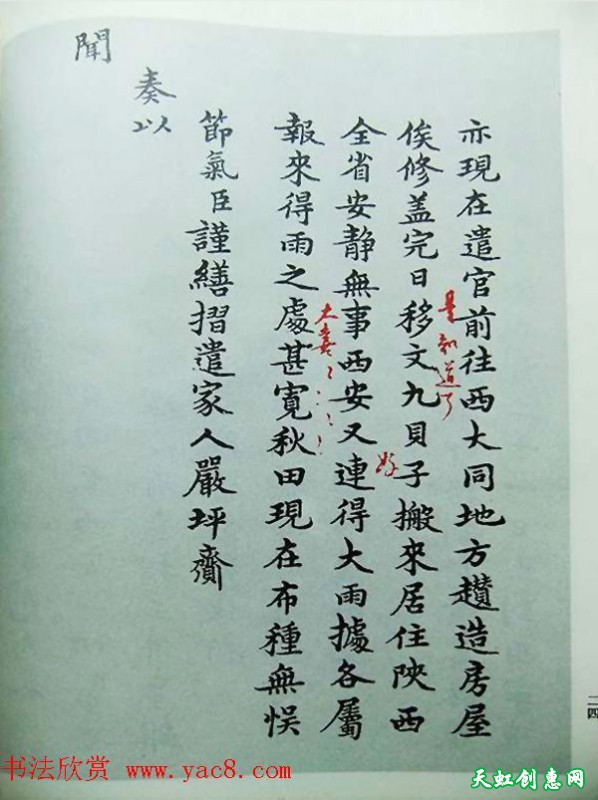 亦現在遣官前往西大同地方趲造房屋
是知道了
俟修盖完日移文九貝子搬來居住陝西
好
全省安靜無事西安又連得大雨據各屬
大喜
報來得雨之處甚寬秋田現在布種無悞
節氣臣謹繕摺遣家人嚴坪齎
奏以
聞
二四
书法欣赏 www.yac8.com
天虹创惠网